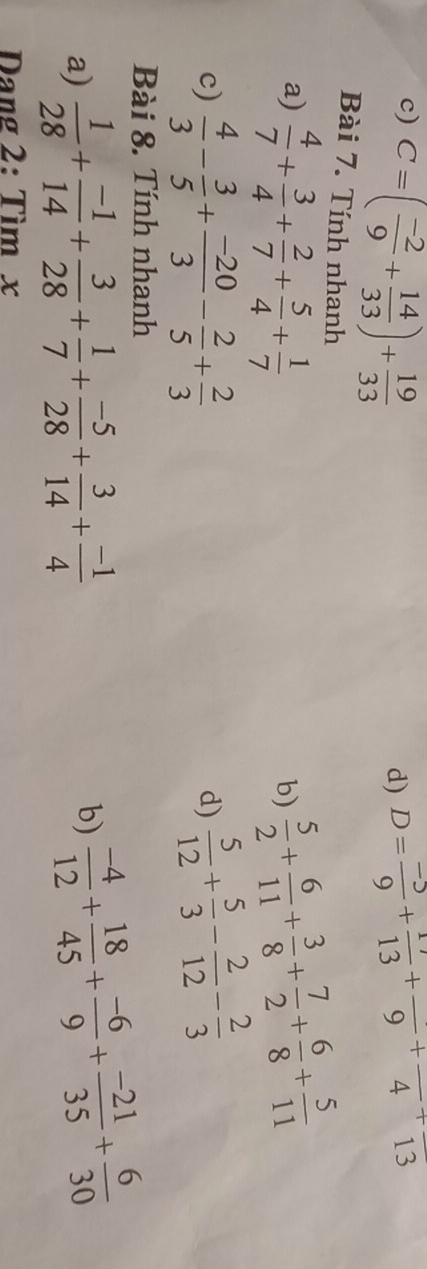 c) C = (-2/9 + 14/33) + 19/33 d) D = -5/9 + /13 + /9 + /4 + /13
Bài 7. Tính nhanh
a) 4/7 + 3/4 + 2/7 + 5/4 + 1/7 b) 5/2 + 6/11 + 3/8 + 7/2 + 6/8 + 5/11
c) 4/3 - 3/5 + -20/3 - 2/5 + 2/3 d) 5/12 + 5/3 - 2/12 - 2/3
Bài 8. Tính nhanh
a) 1/28 + -1/14 + 3/28 + 1/7 + -5/28 + 3/14 + -1/4 b) -4/12 + 18/45 + -6/9 + -21/35 + 6/30
Dạng 2: Tìm x